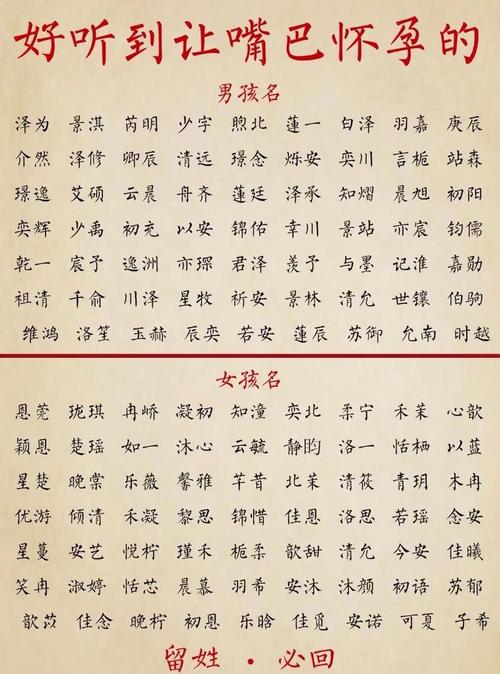 好听到让嘴巴怀孕的
男孩名
泽为 景淇 芮明 少宇 煦北 蓮一 白泽 羽嘉 庚辰
介然 泽修 卿辰 清远 璟念 烁安 奕川 言栀 站森
璟逸 艾硕 云晨 舟齐 蓮廷 泽承 知熠 晨旭 初阳
奕辉 少禹 初充 以安 锦佑 幸川 景站 亦宸 钧儒
乾一 宸予 逸洲 亦琛 君泽 羡予 与墨 记淮 嘉勋
祖清 千俞 川泽 星牧 祈安 景林 清允 世镶 伯驹
维鸿 洛笙 玉赫 辰奕 若安 蓮辰 苏御 允南 时越
女孩名
恩莞 珑琪 冉峤 凝初 知潼 奕北 柔宁 禾茉 心歆
颖恩 楚瑶 如一 沐心 云毓 静昀 洛一 恬栖 以蓝
星楚 晚棠 乐薇 馨雅 芊昔 北茉 清筱 青玥 木冉
优游 倾清 禾凝 黎思 锦惜 佳恩 洛思 若瑶 念安
星蔓 安艺 悦柠 瑾禾 栀柔 歆甜 清允 今安 佳曦
笑冉 淑婷 恬芯 晨慕 羽希 安沐 沐颜 初语 苏郁
歆苡 佳念 晚柠 初恩 乐晗 佳觅 安诺 可夏 子希
留姓 · 必回